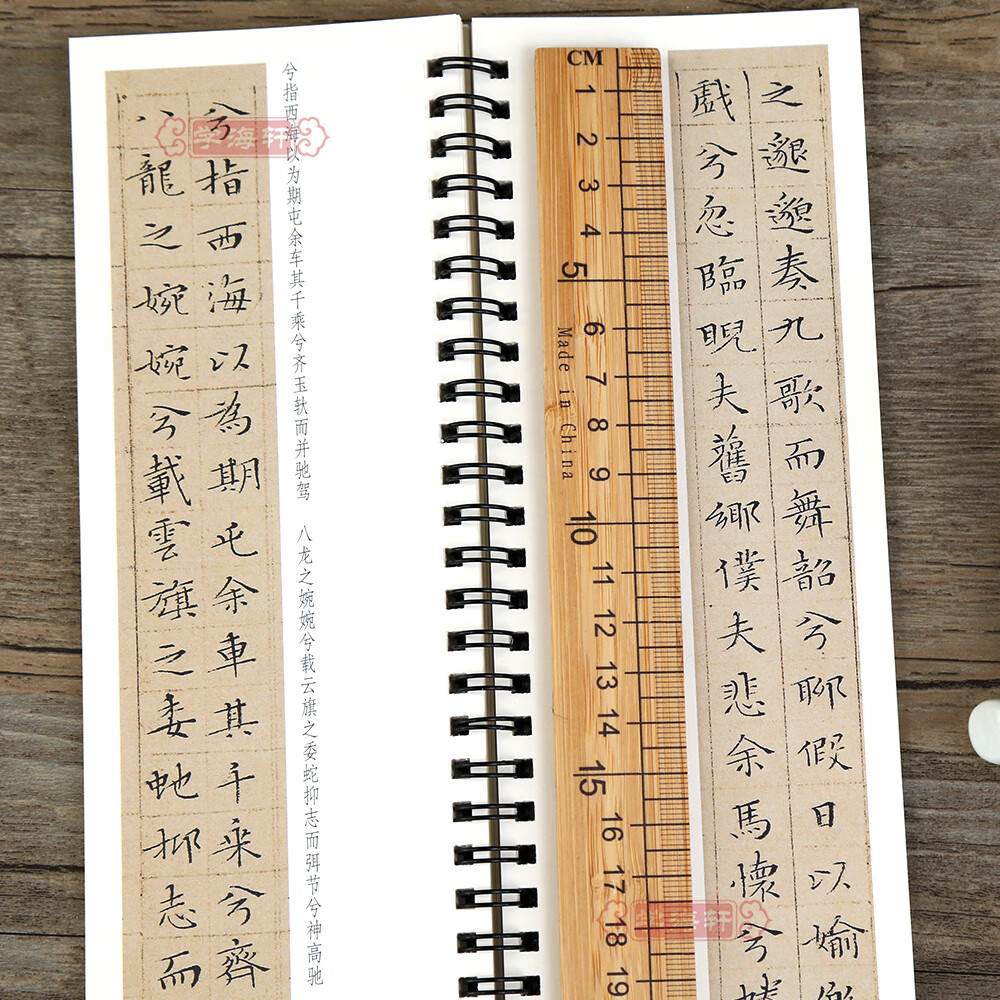 兮指西海以为期屯余车其千乘兮齐玉轪而并驰驾 八龙之婉婉兮载云旗之委蛇抑志而弭节兮神高驰
兮指西海以為期屯余車其千乘兮齊
八龍之婉婉兮載雲旗之委虵抑志而
学海轩
CM
1
2
3
4
5
6
7
8
9
10
11
12
13
14
15
16
17
18
19
Made in China
之邈邈奏九歌而舞韶兮聊假日以婾
戲兮忽臨睨夫舊鄉僕夫悲余馬懷兮
学海轩